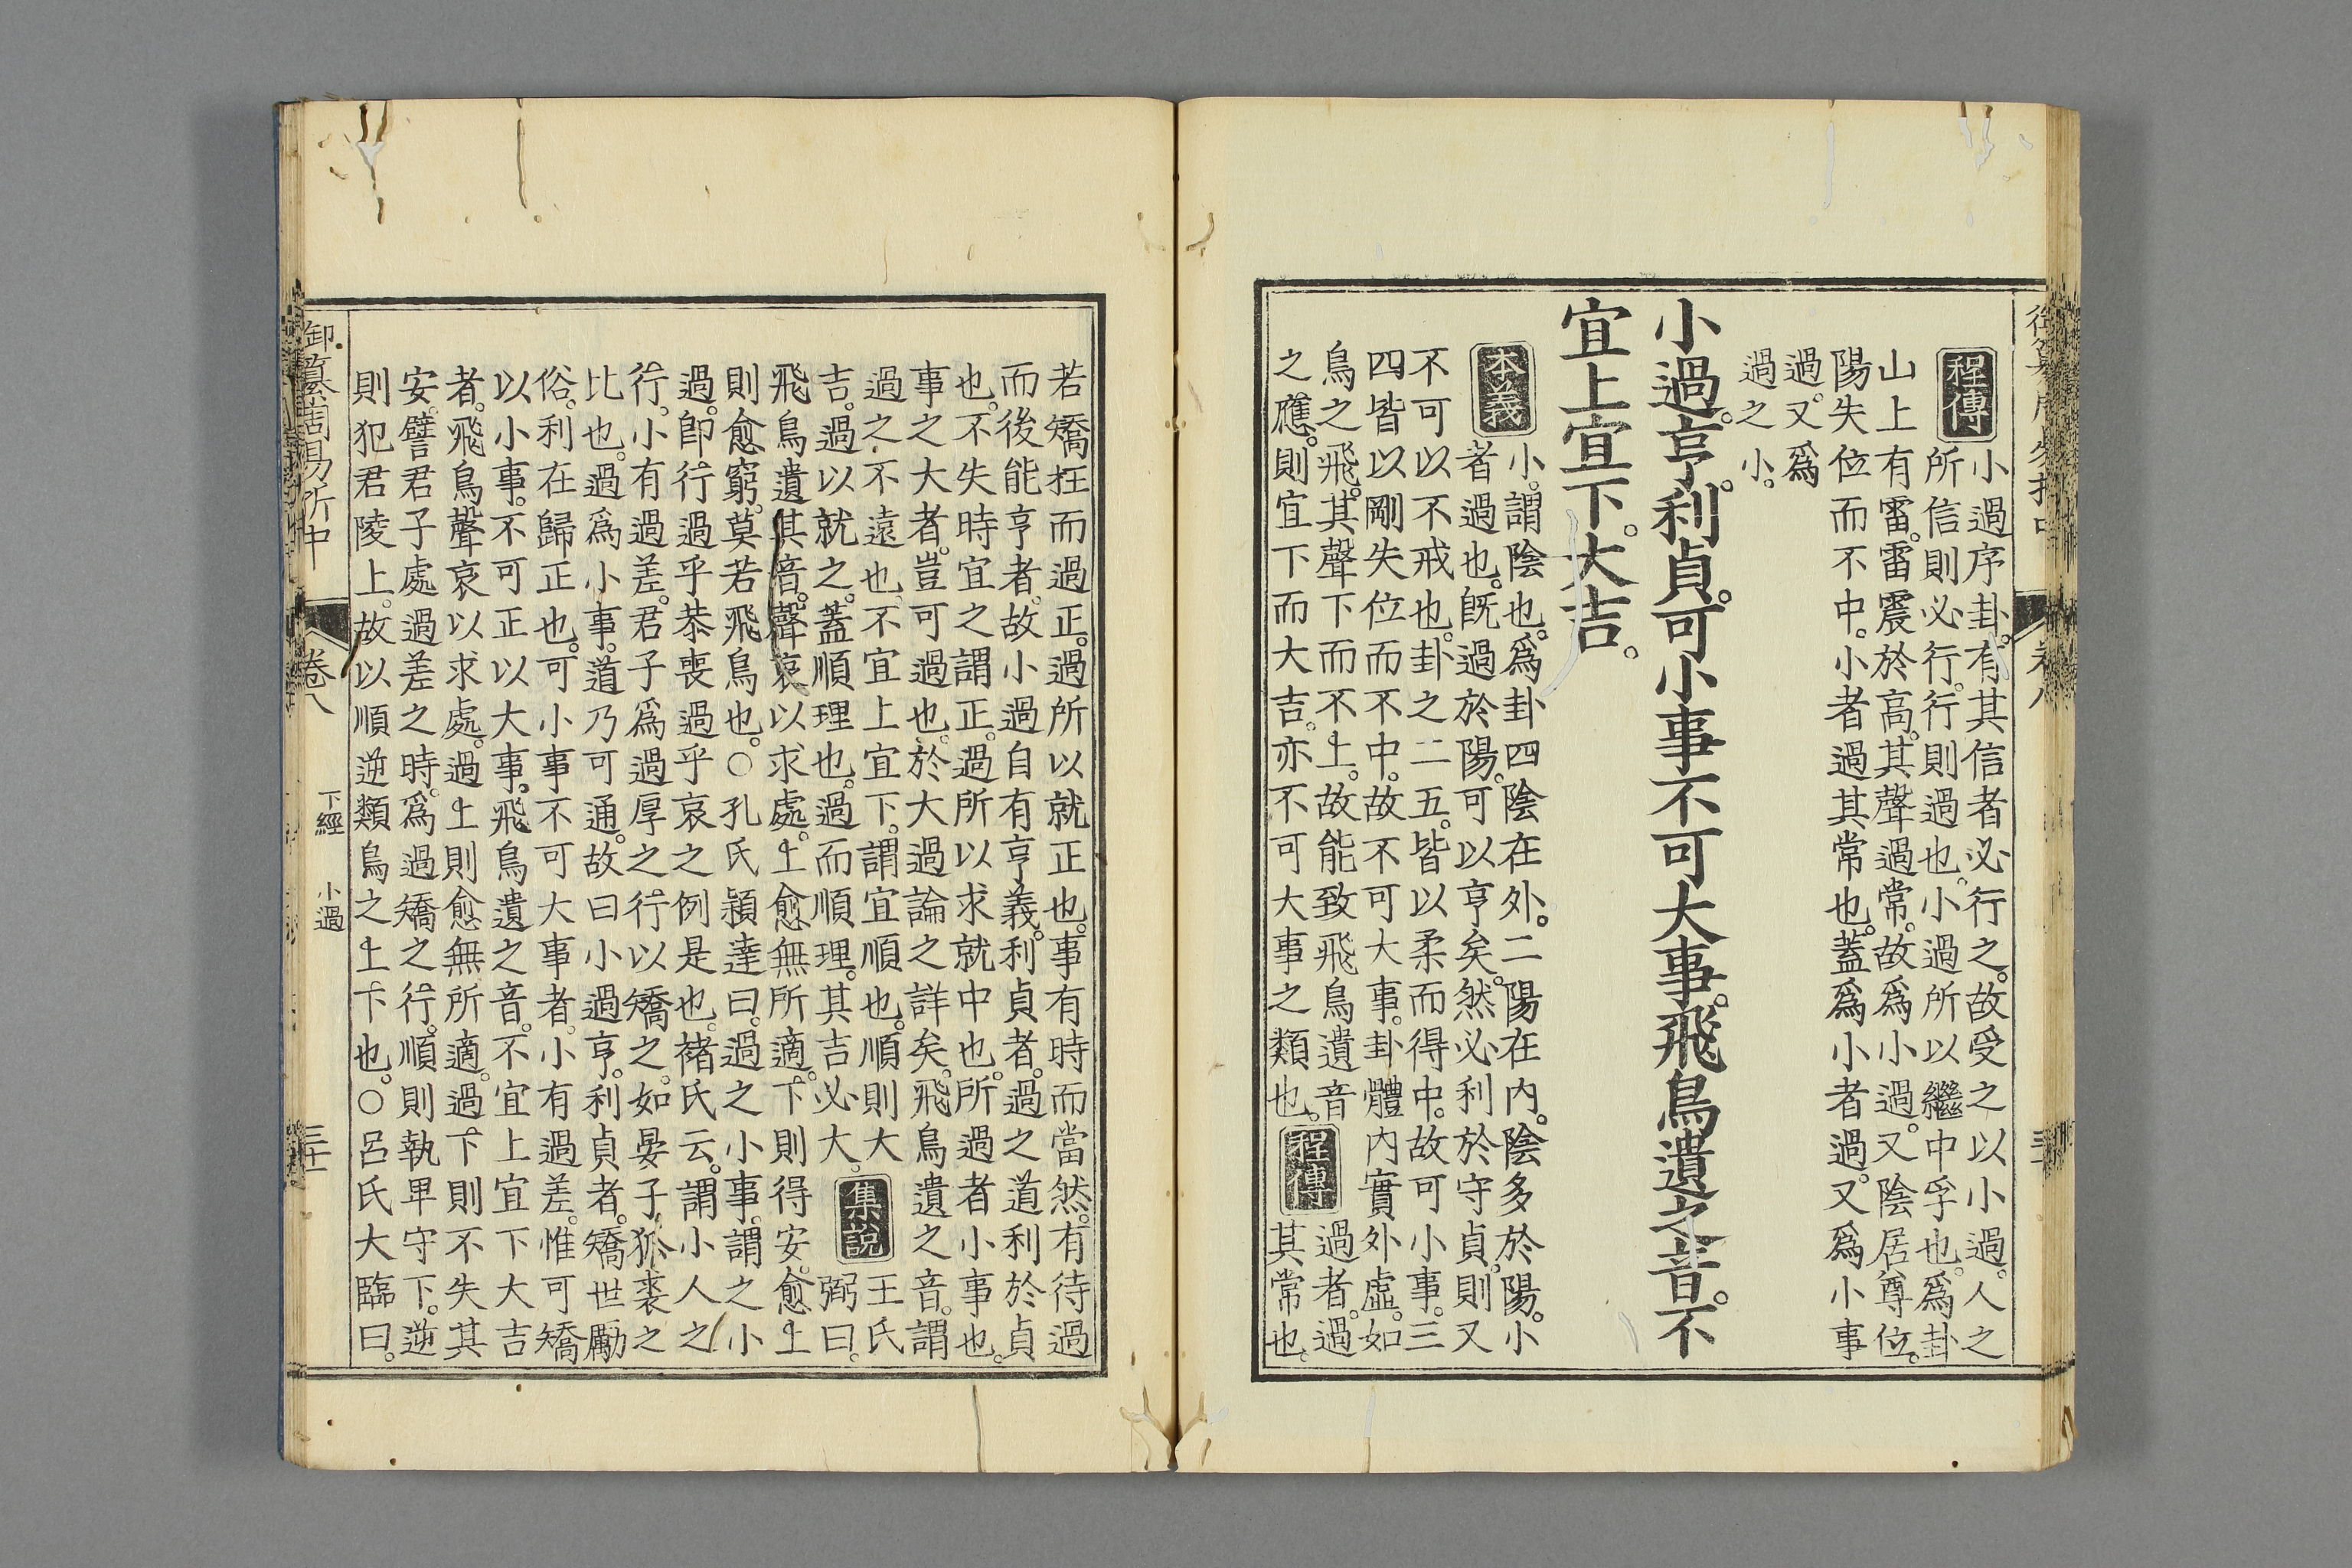 程傳
小過序卦。有其信者必行之。故受之以小過。人之
所信則必行。行則過也。小過所以繼中孚也。爲卦
山上有雷。雷震於高。其聲過常。故爲小過。又陰居尊位。
陽失位而不中。小者過其常也。蓋爲小者過。又爲小事
過。又爲
過之小。
小過亨。利貞。可小事不可大事。飛鳥遺之音。不
宜上宜下。大吉。
本義
小。謂陰也。爲卦四陰在外。二陽在内。陰多於陽。小
者過也。旣過於陽。可以亨矣。然必利於守貞。則又
不可以不戒也。卦之二五。皆以柔而得中。故可小事。三
四皆以剛失位而不中。故不可大事。卦體内實外虛。如
鳥之飛。其聲下而不上。故能致飛鳥遺音
之應。則宜下而大吉。亦不可大事之類也。
程傳
過者。過
其常也。
若矯枉而過正。過所以就正也。事有時而當然。有待過
而後能亨者。故小過自有亨義。利貞者。過之道利於貞
也。不失時宜之謂正。過所以求就中也。所過者小事也。
事之大者。豈可過也。於大過論之詳矣。飛鳥遺之音。謂
過之不遠也。不宜上宜下。謂宜順也。順則大
吉。過以就之。蓋順理也。過而順理。其吉必大。
集說
王氏
弼曰。
飛鳥遺其音。聲哀以求處。上愈無所適。下則得安。愈上
則愈窮。莫若飛鳥也。○孔氏穎達曰。過之小事。謂之小
過。卽行過乎恭喪過乎哀之例是也。褚氏云。謂小人之
行。小有過差。君子爲過厚之行以矯之。如晏子狐裘之
比也。過爲小事。道乃可通。故曰小過亨。利貞者。矯世勵
俗。利在歸正也。可小事不可大事者。小有過差。惟可矯
以小事。不可正以大事。飛鳥遺之音。不宜上宜下大吉
者。飛鳥聲哀以求處。過上則愈無所適。過下則不失其
安。譬君子處過差之時。爲過矯之行。順則執卑守下。逆
則犯君陵上。故以順逆類鳥之上下也。○呂氏大臨曰。
御纂周易折中
卷八
下經
小過